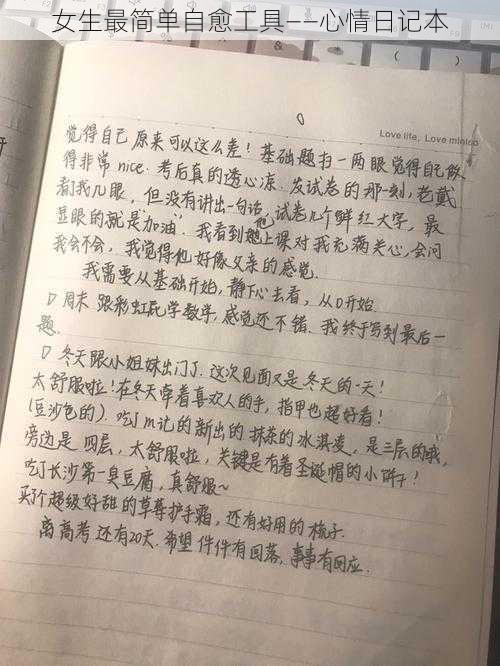 女生最简单自愈工具——心情日记本
Love life, Love miniso
觉得自己原来可以这么差！基础题扫一两眼觉得自己做
得非常nice. 考后真的透心凉. 发试卷的那一刻, 老戴
看了我几眼, 但没有讲出一句话, 试卷几个鲜红大字, 最
显眼的就是加油. 我看到他晚上课对我充满关心, 会问
我会不会, 我觉得他好像父亲的感觉.
我需要从基础开始, 静下心去看, 从0开始.
周末 跟彩虹屁学数学, 感觉还不错. 我终于写到最后一
题.
冬天跟小姐妹出门了. 这次见面又是冬天的一天！
太舒服啦！在冬天牵着喜欢人的手, 指甲也超好看！
(豆沙色的). 吃了m记的新出的抹茶的冰淇凌, 是三层的哦,
旁边是 四层, 太舒服啦, 关键是有着圣诞帽的小饼干！
吃了长沙第一臭豆腐, 真舒服~
买了个超级好甜的草莓护手霜, 还有好用的梳子.
离高考还有20天. 希望 件件有回落, 事事有回应.